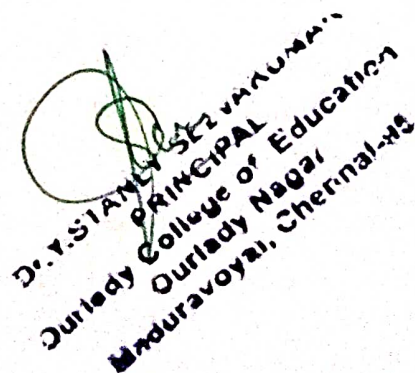 Dr. Y. STANLY SELVAKUMAR
PRINCIPAL
Ourlady College of Education
Ourlady Nagar
Maduravoyal, Chennai-